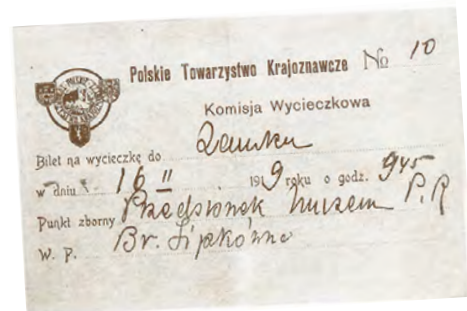 Polskie Towarzystwo Krajoznawcze No 10
Komisja Wycieczkowa
Bilet na wycieczkę do Zamku
w dniu 16 II 1919 roku o godz. 9 45
Punkt zborny Przedsionek Muzeum P. R
W. P. Br.